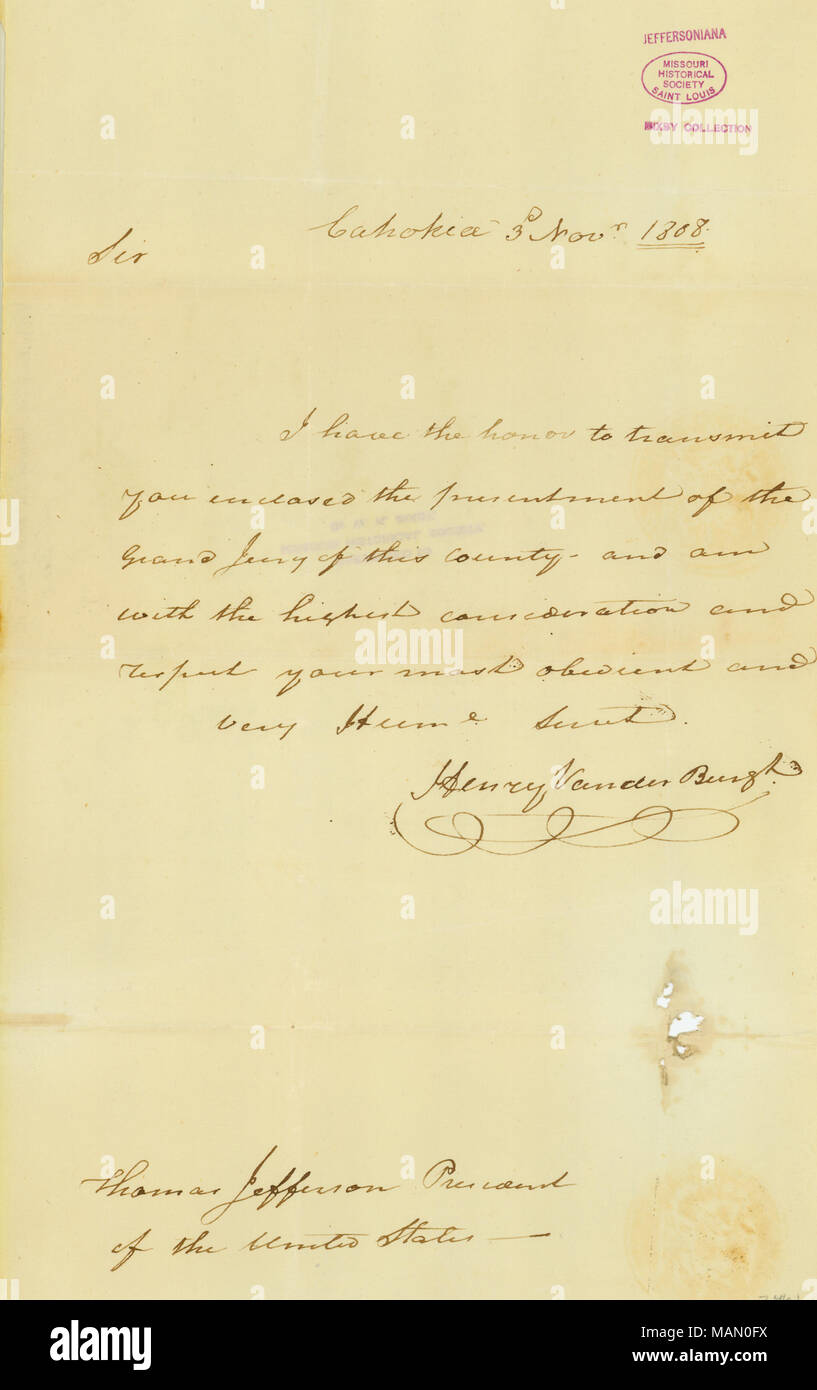 JEFFERSONIANA
MISSOURI
HISTORICAL
SOCIETY
SAINT LOUIS
BIXBY COLLECTION
Cahokia 3d Novr 1808
Sir
I have the honor to transmit
you enclosed the presentment of the
Grand Jury of this County - and am
with the highest consideration and
respect your most obedient and
very Humle Servt.
Henry Vander Burgh
Thomas Jefferson President
of the United States —
alamy
Image ID: MAN0FX
www.alamy.com